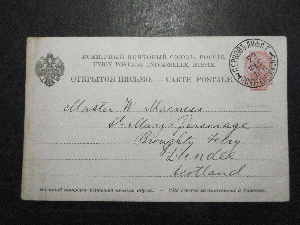 ВСЕМІРНЫЙ ПОЧТОВЫЙ СОЮЗЪ. РОССІЯ.
UNION POSTALE UNIVERSELLE. RUSSIE.
ОТКРЫТОЕ ПИСЬМО. — CARTE POSTALE.
Master W.
St Mary's Parsonage
Broughty Ferry
Dundee
Scotland
Côté réservé exclusivement à l'adresse.